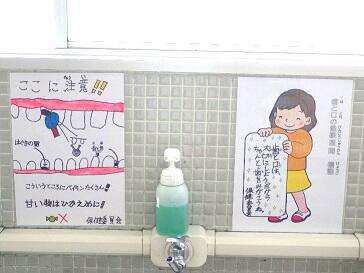 ここに注意!!
はぐきの間
こういうところにバイキンたくさん!
甘い物はひかえめに!
保健委員会
歯と口の健康週間
歯と口は、
大切にしよう。だから
ちゃんと歯をみがこうね。
保健委員会